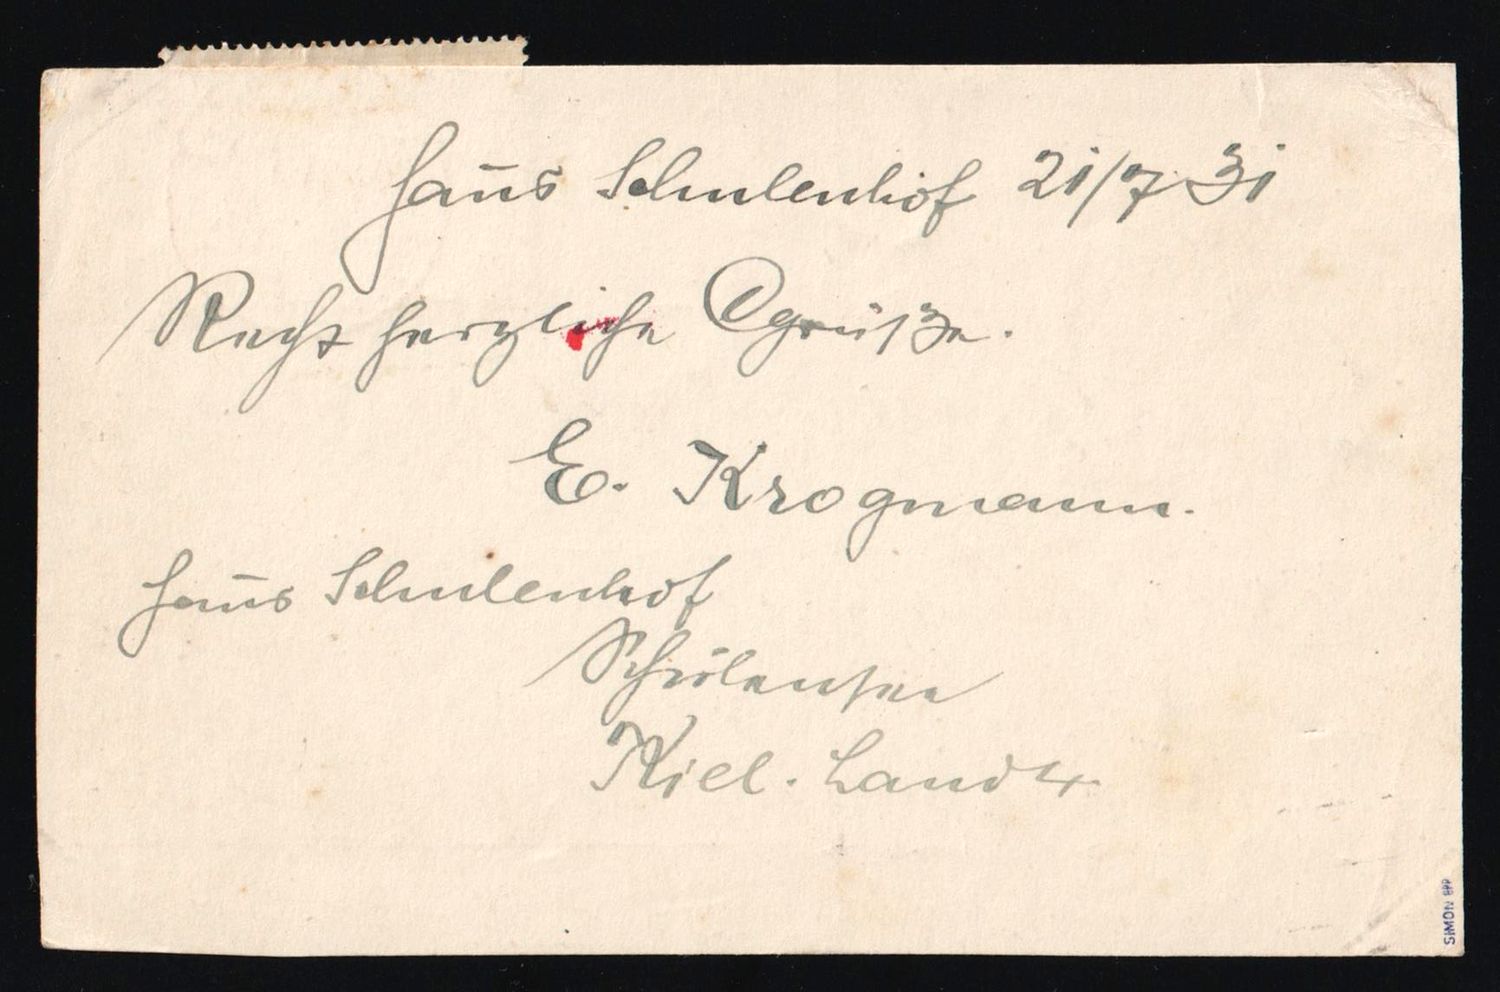 Haus Schulenhof 21/7 31
Recht herzliche Grüße.
E. Krogmann.
Haus Schulenhof
Schulensee
Kiel. Land
SIMON BPP